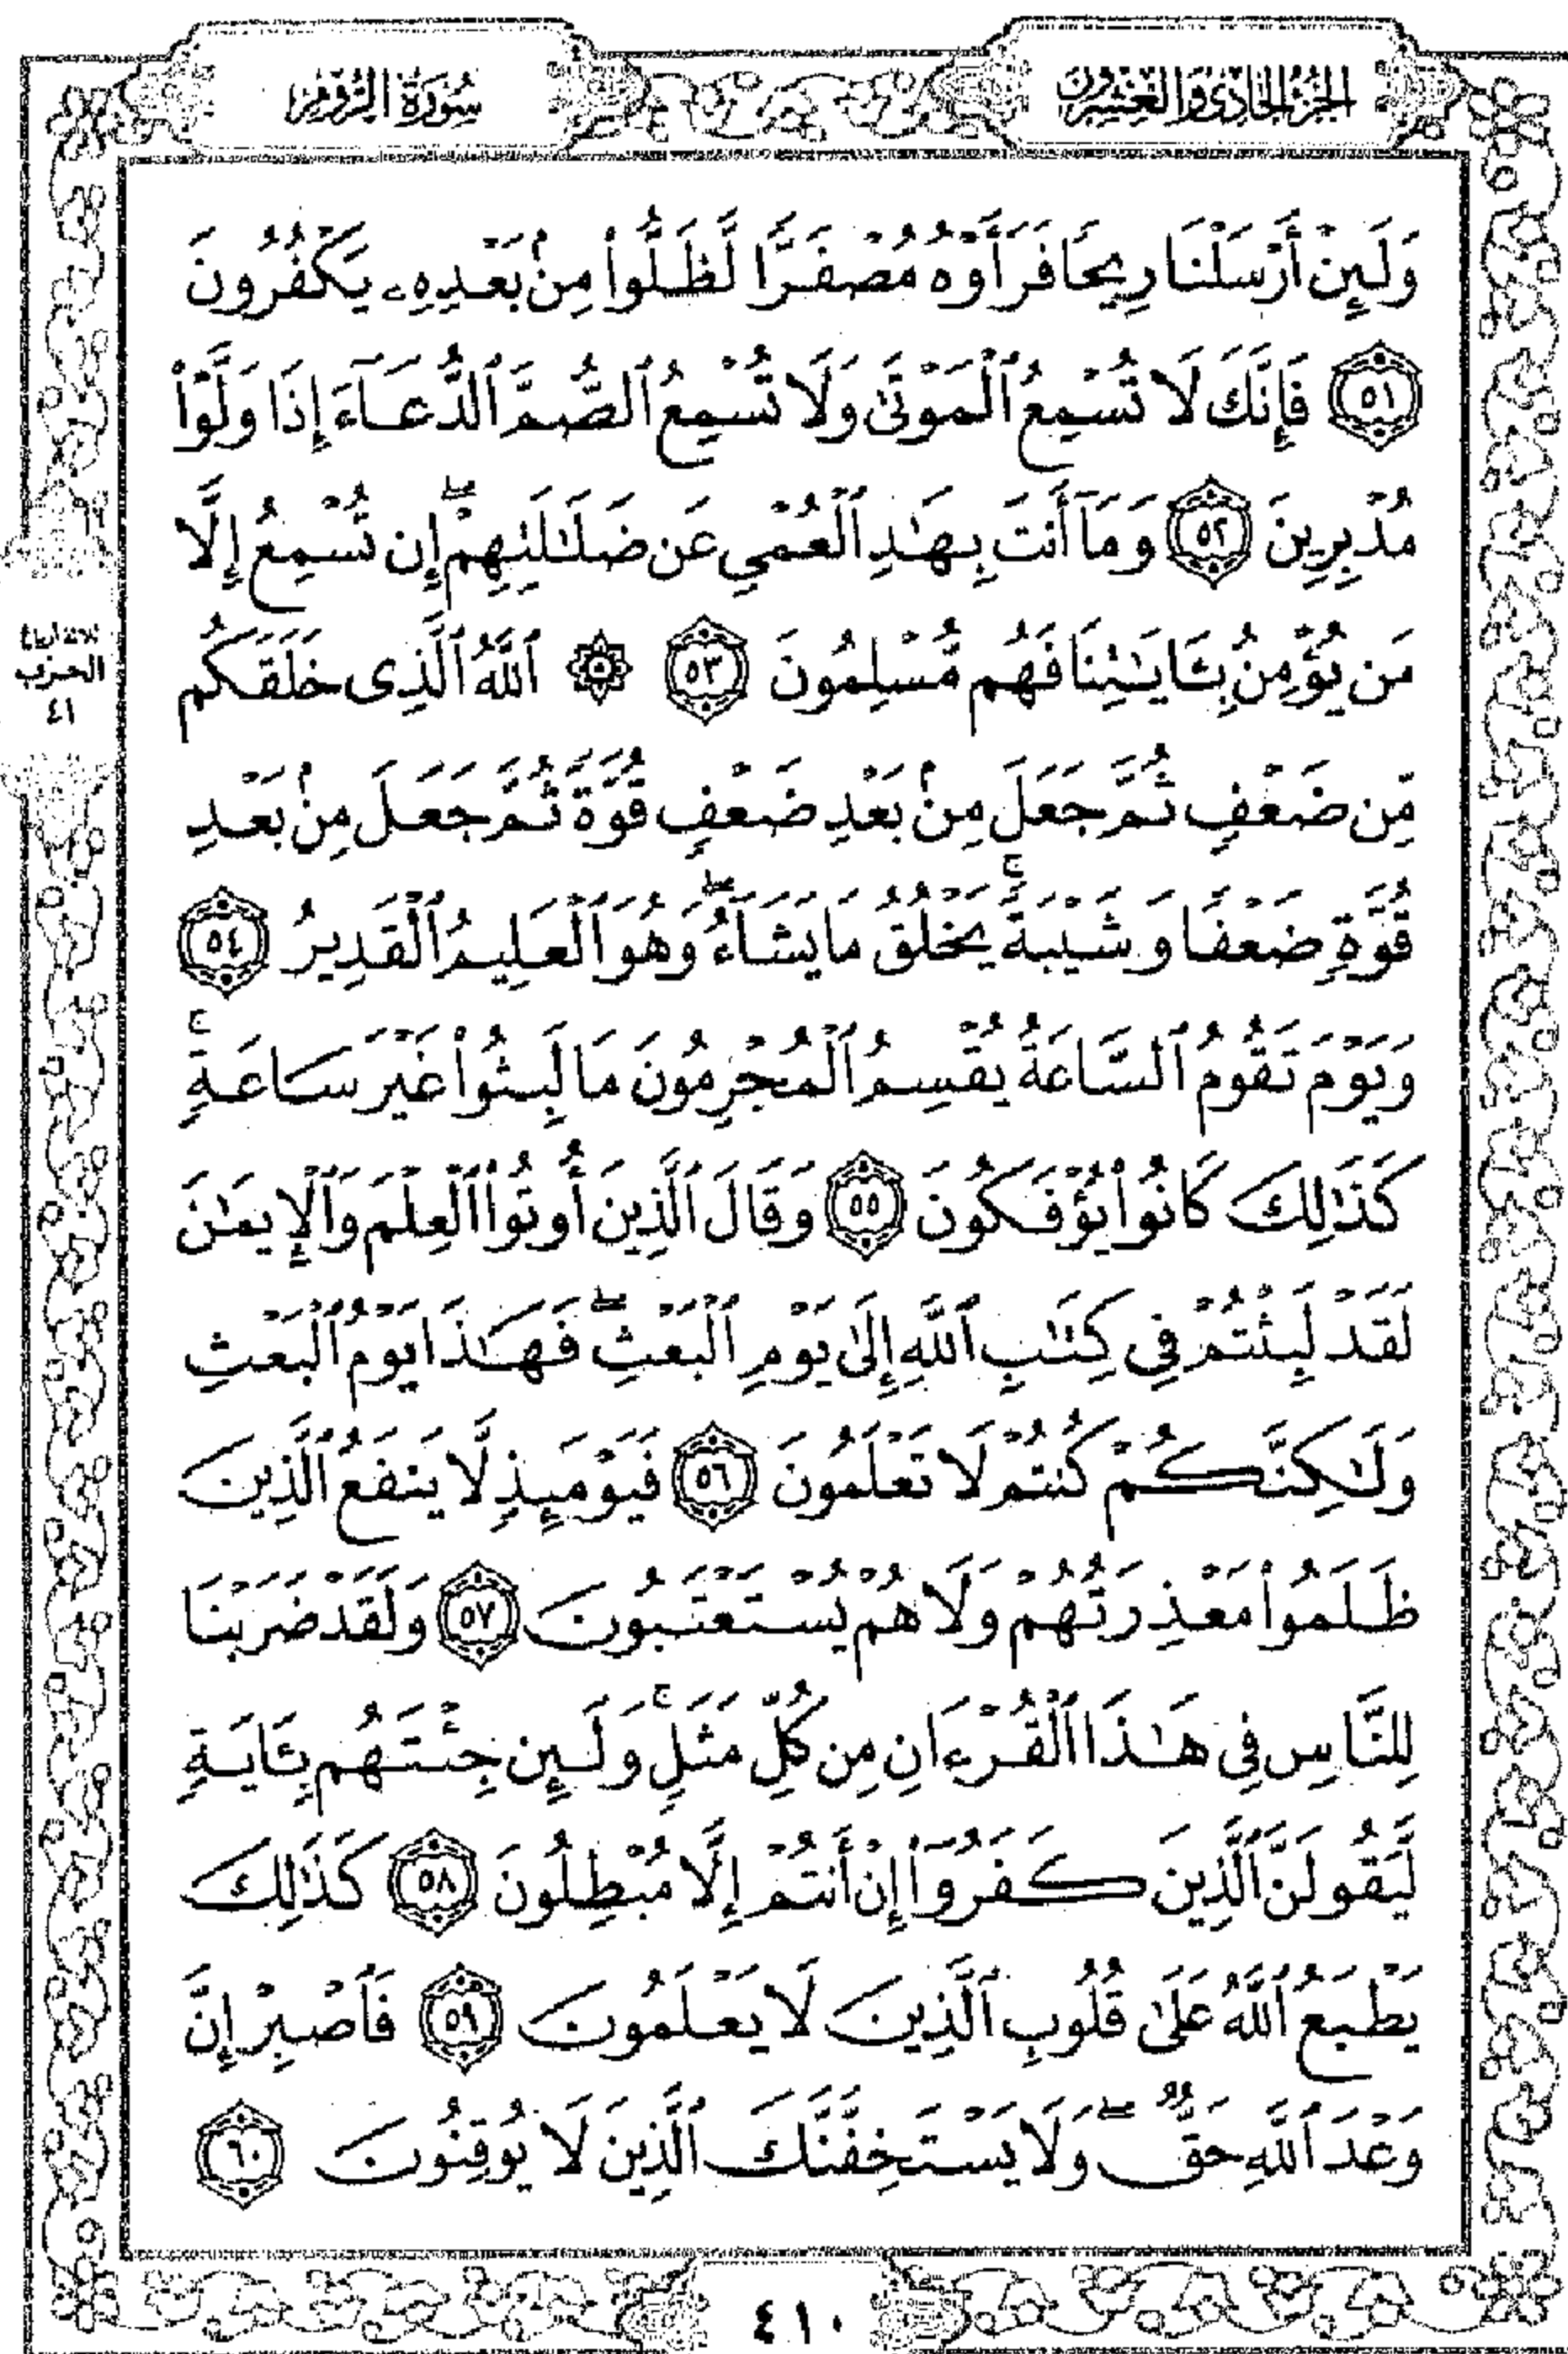 الجزء الحادي والعشرون
سورة الروم
وَلَئِنْ أَرْسَلْنَا رِيحًا فَرَأَوْهُ مُصْفَرًّا لَّظَلُّوا۟ مِنۢ بَعْدِهِۦ يَكْفُرُونَ
٥١ فَإِنَّكَ لَا تُسْمِعُ ٱلْمَوْتَىٰ وَلَا تُسْمِعُ ٱلصُّمَّ ٱلدُّعَآءَ إِذَا وَلَّوْا۟
مُدْبِرِينَ ٥٢ وَمَآ أَنتَ بِهَـٰدِ ٱلْعُمْىِ عَن ضَلَـٰلَتِهِمْ ۖ إِن تُسْمِعُ إِلَّا
مَن يُؤْمِنُ بِـَٔايَـٰتِنَا فَهُم مُّسْلِمُونَ ٥٣ ۞ ٱللَّهُ ٱلَّذِى خَلَقَكُم
ثلاثة أرباع
الحزب
٤١
مِّن ضَعْفٍ ثُمَّ جَعَلَ مِنۢ بَعْدِ ضَعْفٍ قُوَّةً ثُمَّ جَعَلَ مِنۢ بَعْدِ
قُوَّةٍ ضَعْفًا وَشَيْبَةً ۚ يَخْلُقُ مَا يَشَآءُ ۖ وَهُوَ ٱلْعَلِيمُ ٱلْقَدِيرُ ٥٤
وَيَوْمَ تَقُومُ ٱلسَّاعَةُ يُقْسِمُ ٱلْمُجْرِمُونَ مَا لَبِثُوا۟ غَيْرَ سَاعَةٍ ۚ
كَذَٰلِكَ كَانُوا۟ يُؤْفَكُونَ ٥٥ وَقَالَ ٱلَّذِينَ أُوتُوا۟ ٱلْعِلْمَ وَٱلْإِيمَـٰنَ
لَقَدْ لَبِثْتُمْ فِى كِتَـٰبِ ٱللَّهِ إِلَىٰ يَوْمِ ٱلْبَعْثِ ۖ فَهَـٰذَا يَوْمُ ٱلْبَعْثِ
وَلَـٰكِنَّكُمْ كُنتُمْ لَا تَعْلَمُونَ ٥٦ فَيَوْمَئِذٍ لَّا يَنفَعُ ٱلَّذِينَ
ظَلَمُوا۟ مَعْذِرَتُهُمْ وَلَا هُمْ يُسْتَعْتَبُونَ ٥٧ وَلَقَدْ ضَرَبْنَا
لِلنَّاسِ فِى هَـٰذَا ٱلْقُرْءَانِ مِن كُلِّ مَثَلٍ ۚ وَلَئِن جِئْتَهُم بِـَٔايَةٍ
لَّيَقُولَنَّ ٱلَّذِينَ كَفَرُوٓا۟ إِنْ أَنتُمْ إِلَّا مُبْطِلُونَ ٥٨ كَذَٰلِكَ
يَطْبَعُ ٱللَّهُ عَلَىٰ قُلُوبِ ٱلَّذِينَ لَا يَعْلَمُونَ ٥٩ فَٱصْبِرْ إِنَّ
وَعْدَ ٱللَّهِ حَقٌّ ۖ وَلَا يَسْتَخِفَّنَّكَ ٱلَّذِينَ لَا يُوقِنُونَ ٦٠
٤١٠